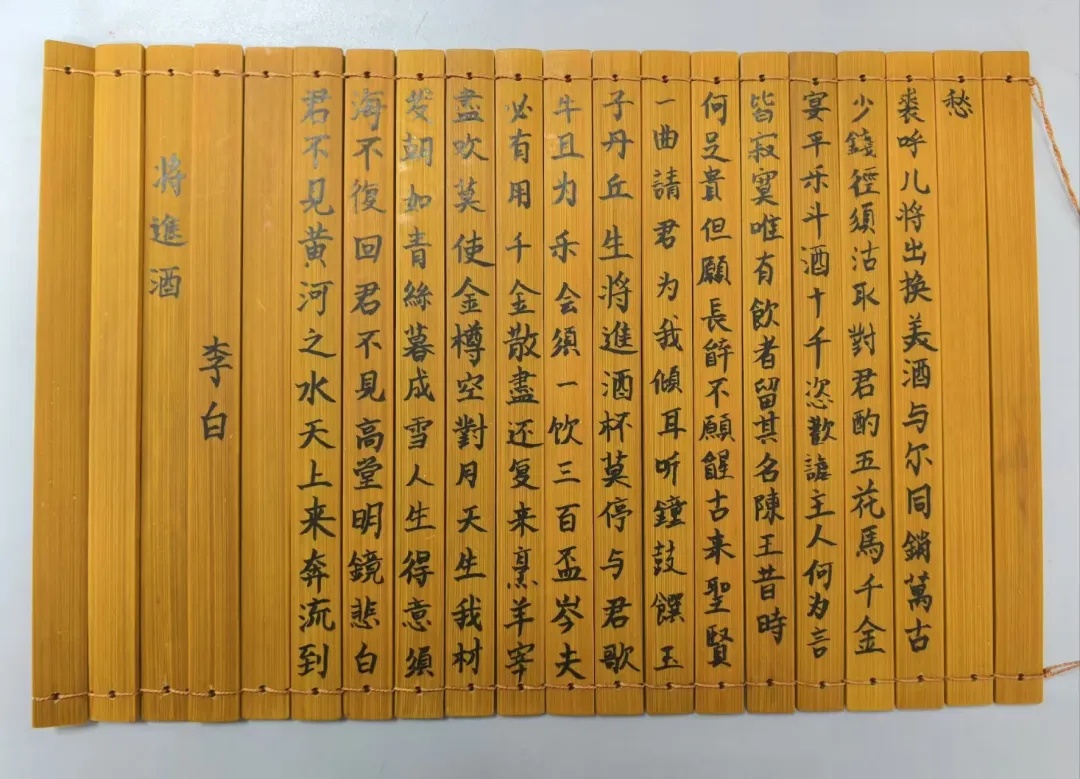 将進酒
李白
君不见黄河之水天上来奔流到
海不復回君不見高堂明鏡悲白
发朝如青絲暮成雪人生得意須
盡欢莫使金樽空對月天生我材
必有用千金散盡还复来烹羊宰
牛且为乐会須一饮三百盃岑夫
子丹丘生将進酒杯莫停与君歌
一曲請君为我傾耳听鐘鼓饌玉
何足貴但願長醉不願醒古来聖賢
皆寂寞唯有飲者留其名陳王昔時
宴平乐斗酒十千恣歡謔主人何为言
少錢徑須沽取對君酌五花馬千金
裘呼儿将出换美酒与尔同銷萬古
愁